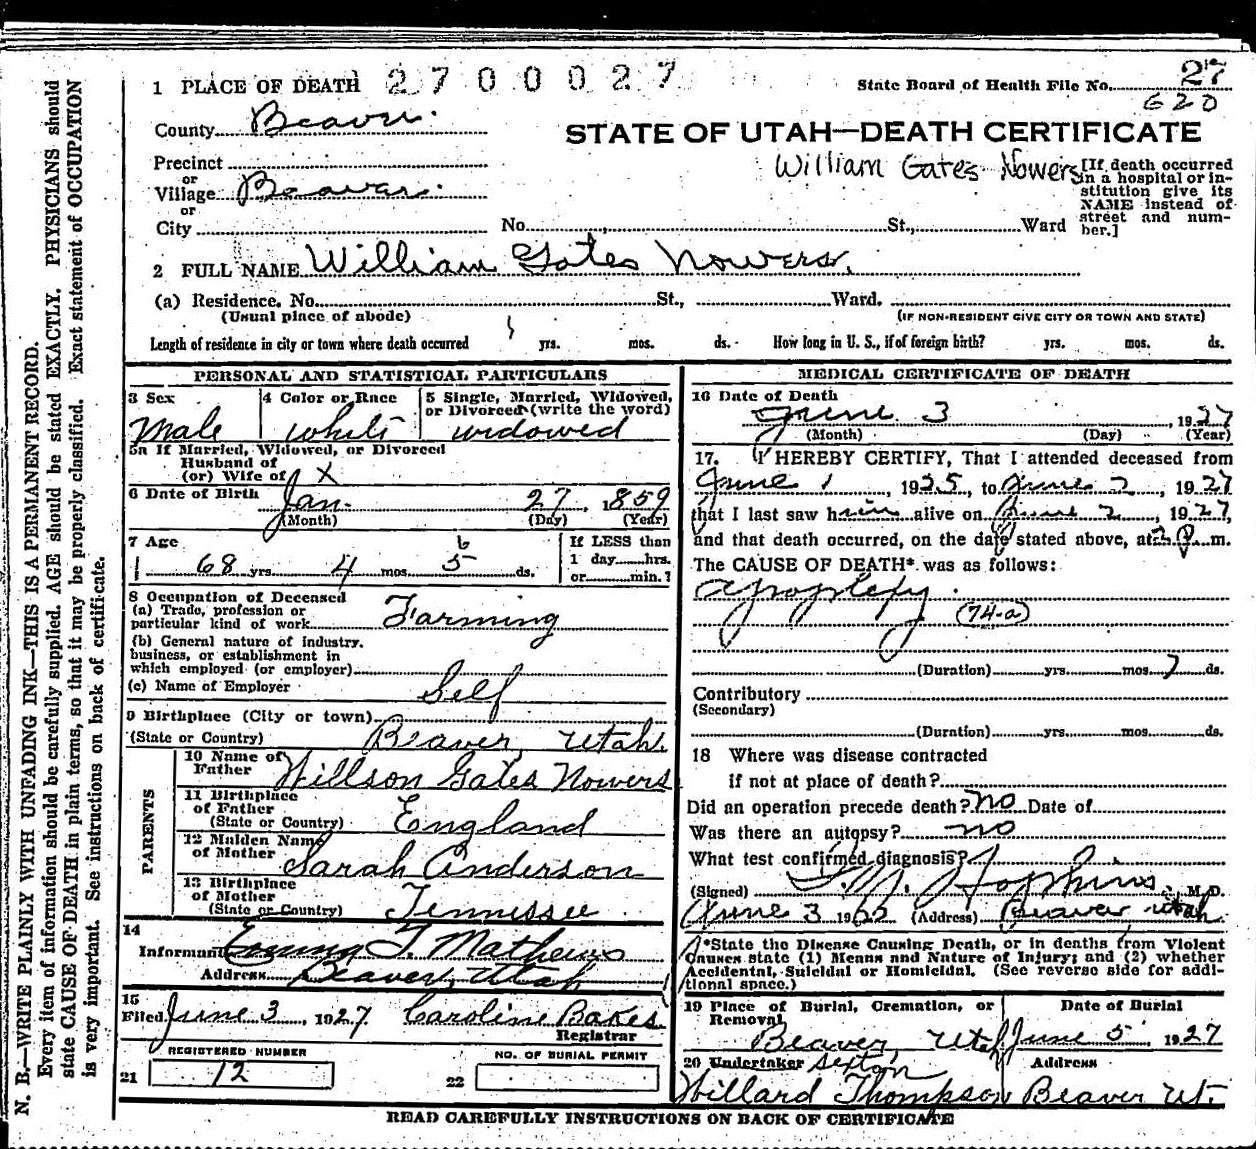 1 PLACE OF DEATH 2700027
State Board of Health File No. 27
620
County Beaver.
STATE OF UTAH—DEATH CERTIFICATE
William Gates Nowers
Precinct
or
Village Beaver.
or
City
No. St., Ward
[If death occurred
in a hospital or in-
stitution give its
NAME instead of
street and num-
ber.]
2 FULL NAME William Gates Nowers.
(a) Residence. No. St., Ward.
(Usual place of abode)
(IF NON-RESIDENT GIVE CITY OR TOWN AND STATE)
Length of residence in city or town where death occurred yrs. mos. ds. How long in U. S., if of foreign birth? yrs. mos. ds.
PERSONAL AND STATISTICAL PARTICULARS
3 Sex
Male
4 Color or Race
white
5 Single, Married, Widowed,
or Divorced (write the word)
widowed
5a If Married, Widowed, or Divorced
Husband of
(or) Wife of X
6 Date of Birth
Jan. 27, 1859
(Month) (Day) (Year)
7 Age
6
68 yrs 4 mos 5 ds.
If LESS than
1 day hrs.
or min.?
8 Occupation of Deceased
(a) Trade, profession or
particular kind of work Farming
(b) General nature of industry.
business, or establishment in
which employed (or employer)
(c) Name of Employer Self
9 Birthplace (City or town)
(State or Country) Beaver, Utah.
PARENTS
10 Name of
Father Willson Gates Nowers
11 Birthplace
of Father
(State or Country) England
12 Maiden Name
of Mother Sarah Anderson
13 Birthplace
of Mother
(State or Country) Tennissee
14
Informant T. Mathews
Address Beaver, Utah
15
Filed June 3, 1927 Caroline Bakes
Registrar
REGISTERED NUMBER
21 12
NO. OF BURIAL PERMIT
22
MEDICAL CERTIFICATE OF DEATH
16 Date of Death
June 3, 1927
(Month) (Day) (Year)
17. I HEREBY CERTIFY, That I attended deceased from
June 1, 1925, to June 2, 1927
that I last saw him alive on June 2, 1927,
and that death occurred, on the date stated above, at 2 P. m.
The CAUSE OF DEATH* was as follows:
apoplexy.
(74-a)
(Duration) yrs. mos. 7 ds.
Contributory
(Secondary)
(Duration) yrs. mos. ds.
18 Where was disease contracted
if not at place of death?
Did an operation precede death? no Date of
Was there an autopsy? no
What test confirmed diagnosis?
(Signed) Hopkins, M. D.
June 3 19 (Address) Beaver Utah.
*State the Disease Causing Death, or in deaths from Violent
Causes state (1) Means and Nature of Injury; and (2) whether
Accidental, Suicidal or Homicidal. (See reverse side for addi-
tional space.)
19 Place of Burial, Cremation, or
Removal
Beaver, Utah
Date of Burial
June 5, 1927
20 Undertaker Sexton
Willard Thompson
Address
Beaver Ut.
READ CAREFULLY INSTRUCTIONS ON BACK OF CERTIFICATE
N. B.—WRITE PLAINLY WITH UNFADING INK—THIS IS A PERMANENT RECORD.
Every item of information should be carefully supplied. AGE should be stated EXACTLY. PHYSICIANS should
state CAUSE OF DEATH in plain terms, so that it may be properly classified. Exact statement of OCCUPATION
is very important. See instructions on back of certificate.